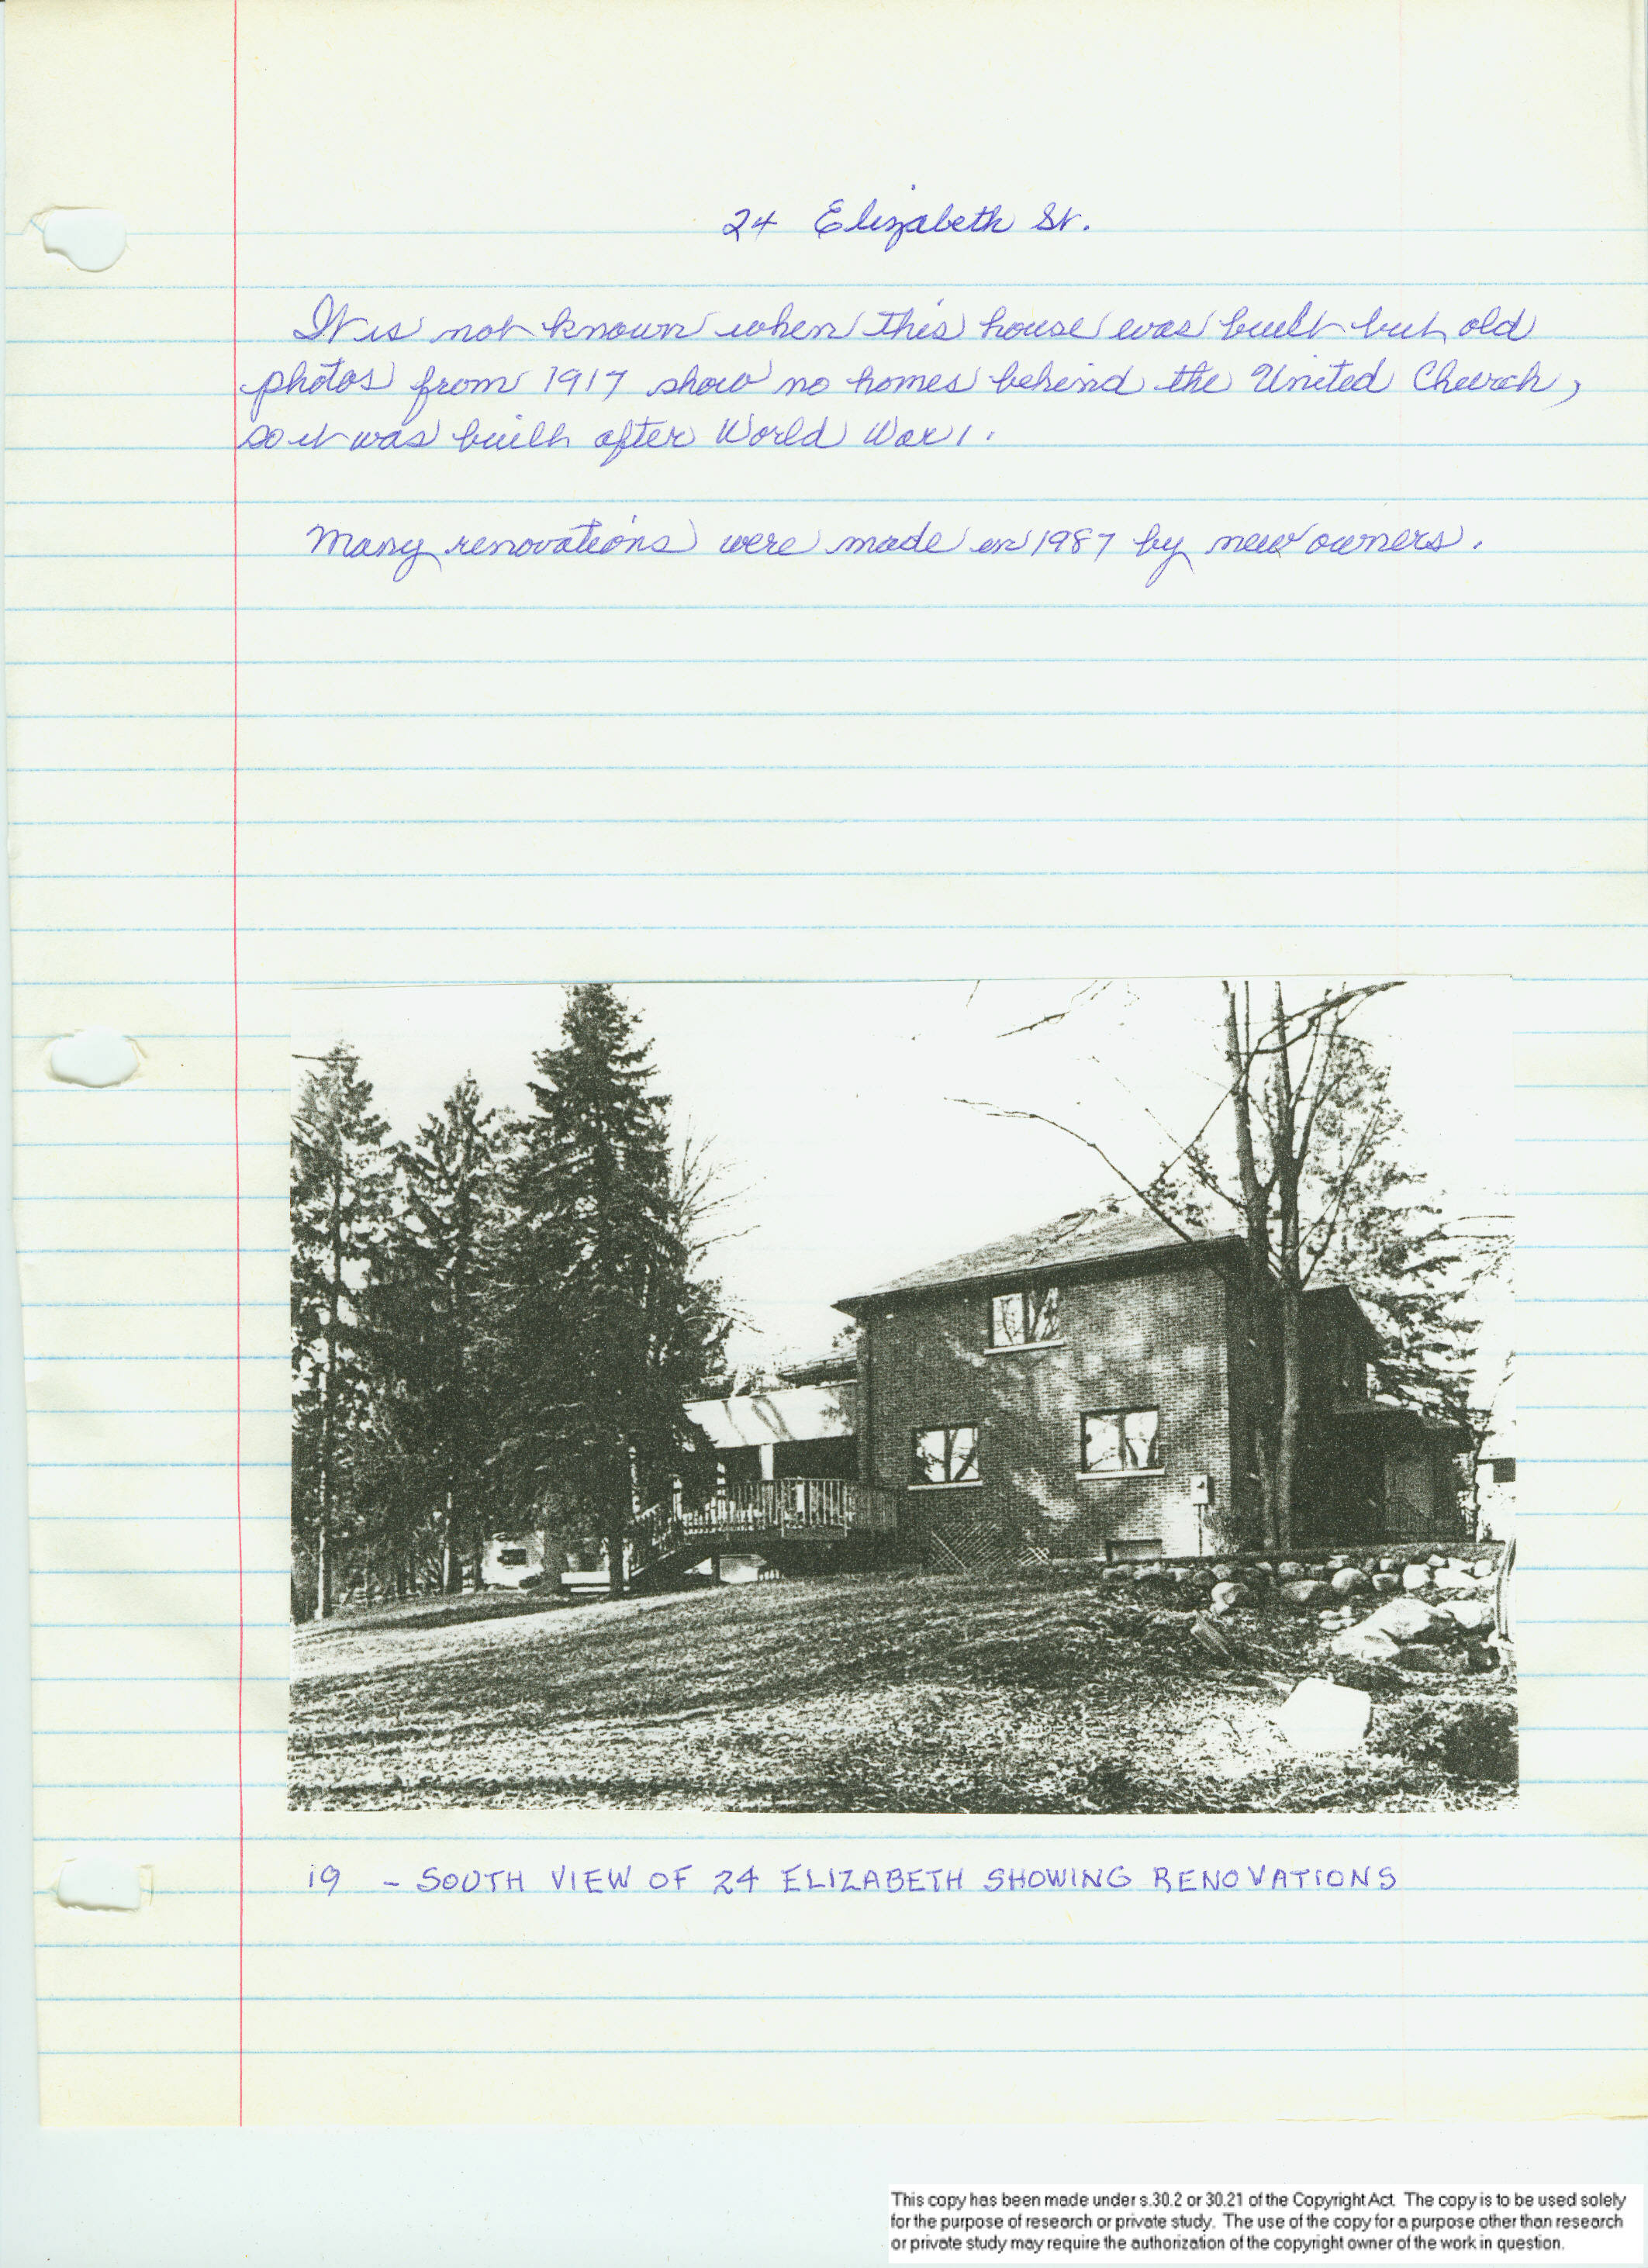 24 Elizabeth St.
It is not known when this house was built but old
photos from 1917 show no homes behind the United Church,
so it was built after World War 1.
Many renovations were made in 1987 by new owners.
19 - SOUTH VIEW OF 24 ELIZABETH SHOWING RENOVATIONS
This copy has been made under s.30.2 or 30.21 of the Copyright Act. The copy is to be used solely
for the purpose of research or private study. The use of the copy for a purpose other than research
or private study may require the authorization of the copyright owner of the work in question.